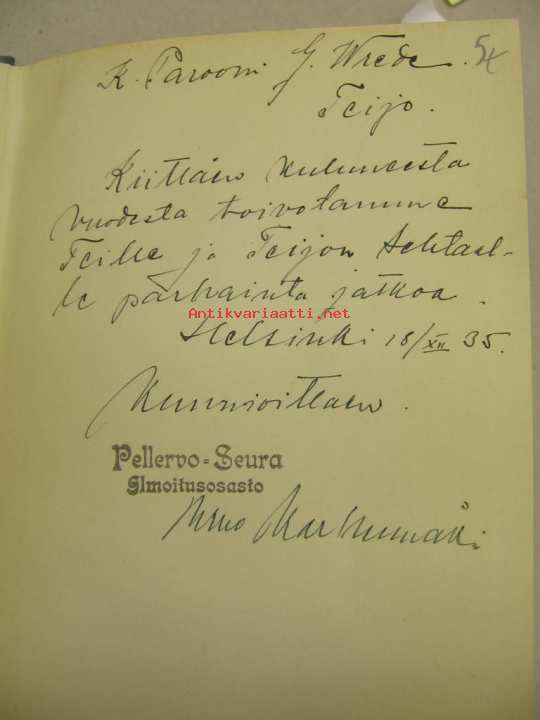 K. Parooni G. Wrede. 54
Teijo.
Kiittäen kuluneesta
vuodesta toivotamme
Teille ja Teijon tehtaal-
le parhainta jatkoa.
Antikvariaatti.net
Helsinki 18/XII 35.
Kunnioittaen.
Pellervo-Seura
Ilmoitusosasto
Karhumäki